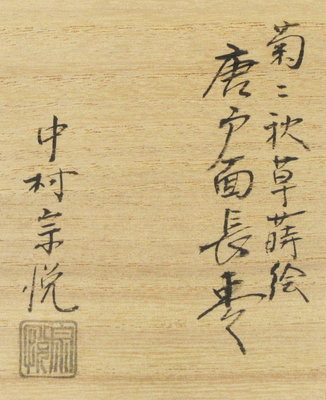 菊ニ秋草蒔絵
唐戸面長棗
中村宗悦
宗悦